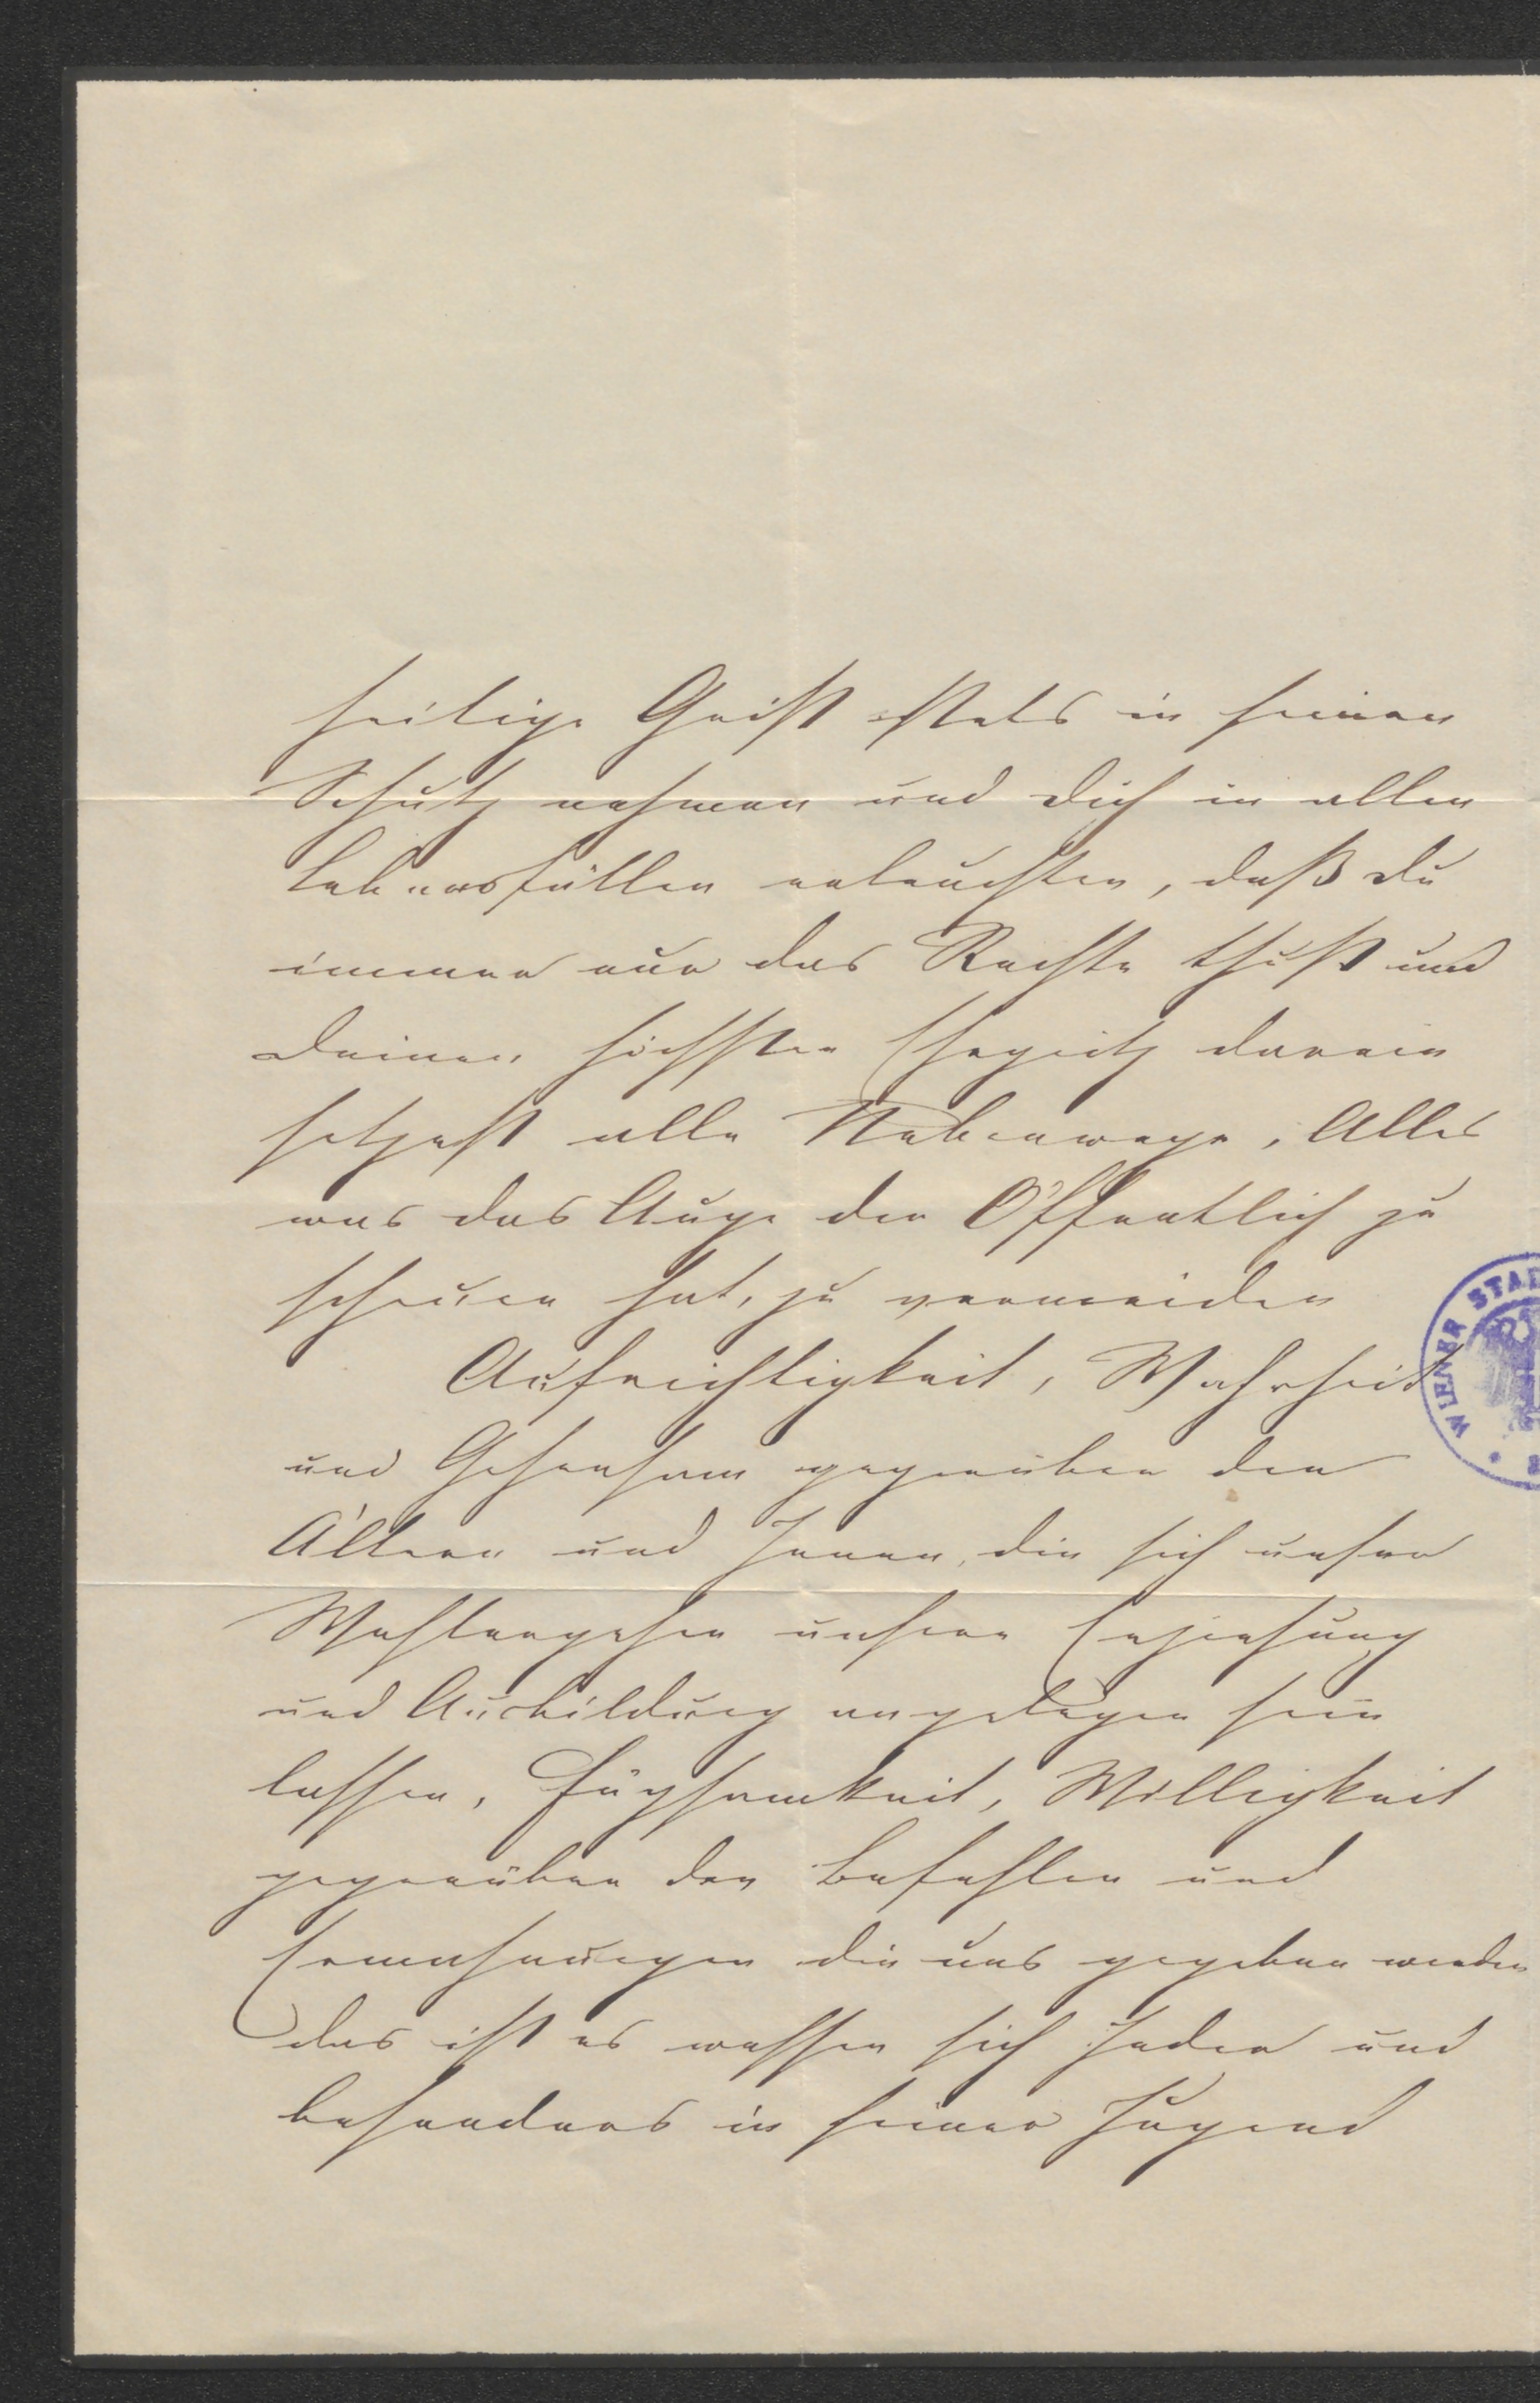 heilige Geist stets in seinen
Schutz nehmen und dich in allen
Lebensfällen erleuchten, daß du
immer nur das Rechte thust und
deinen höchsten Ehrgeitz darein
setzest alle Nebenwege, Alles
was das Auge der Öffentlich zu
scheuen hat, zu vermeiden
Aufrichtigkeit, Wahrheit
und Gehorsam gegenüber den
Ältern und Jenen, die sich unser
Wohlergehen unsere Erziehung
und Ausbildung angelegen sein
lassen, Fügsamkeit, Willigkeit
gegenüber den Befehlen und
Ermahnungen die uns gegeben werden
das ist es wessen sich Jeder und
besonders in seiner Jugend
WIENER STA